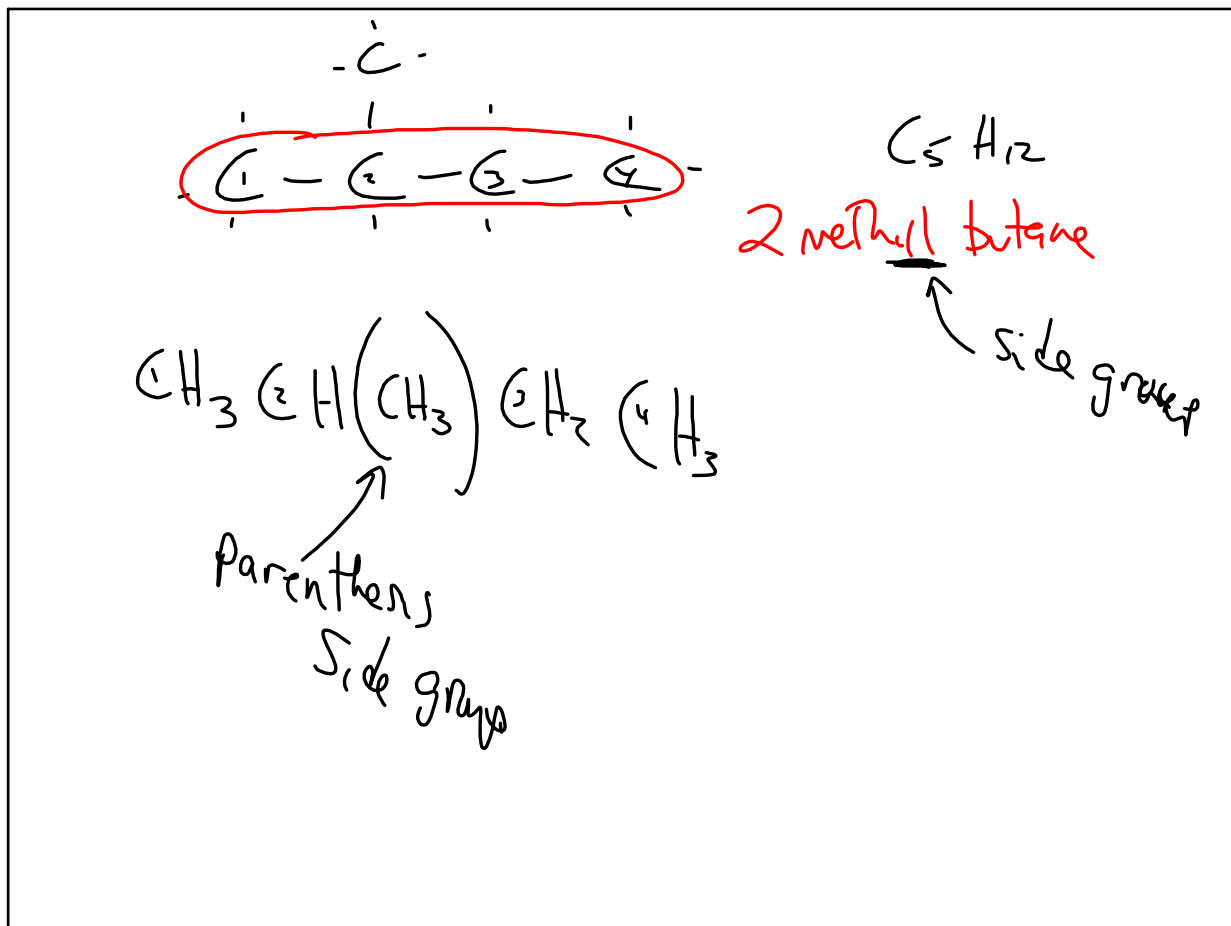 C
C1 — C2 — C3 — C4
C5 H12
2 methyl butane
side group
CH3 CH(CH3) CH2 CH3
1 2 3 4
Parenthesis
Side group